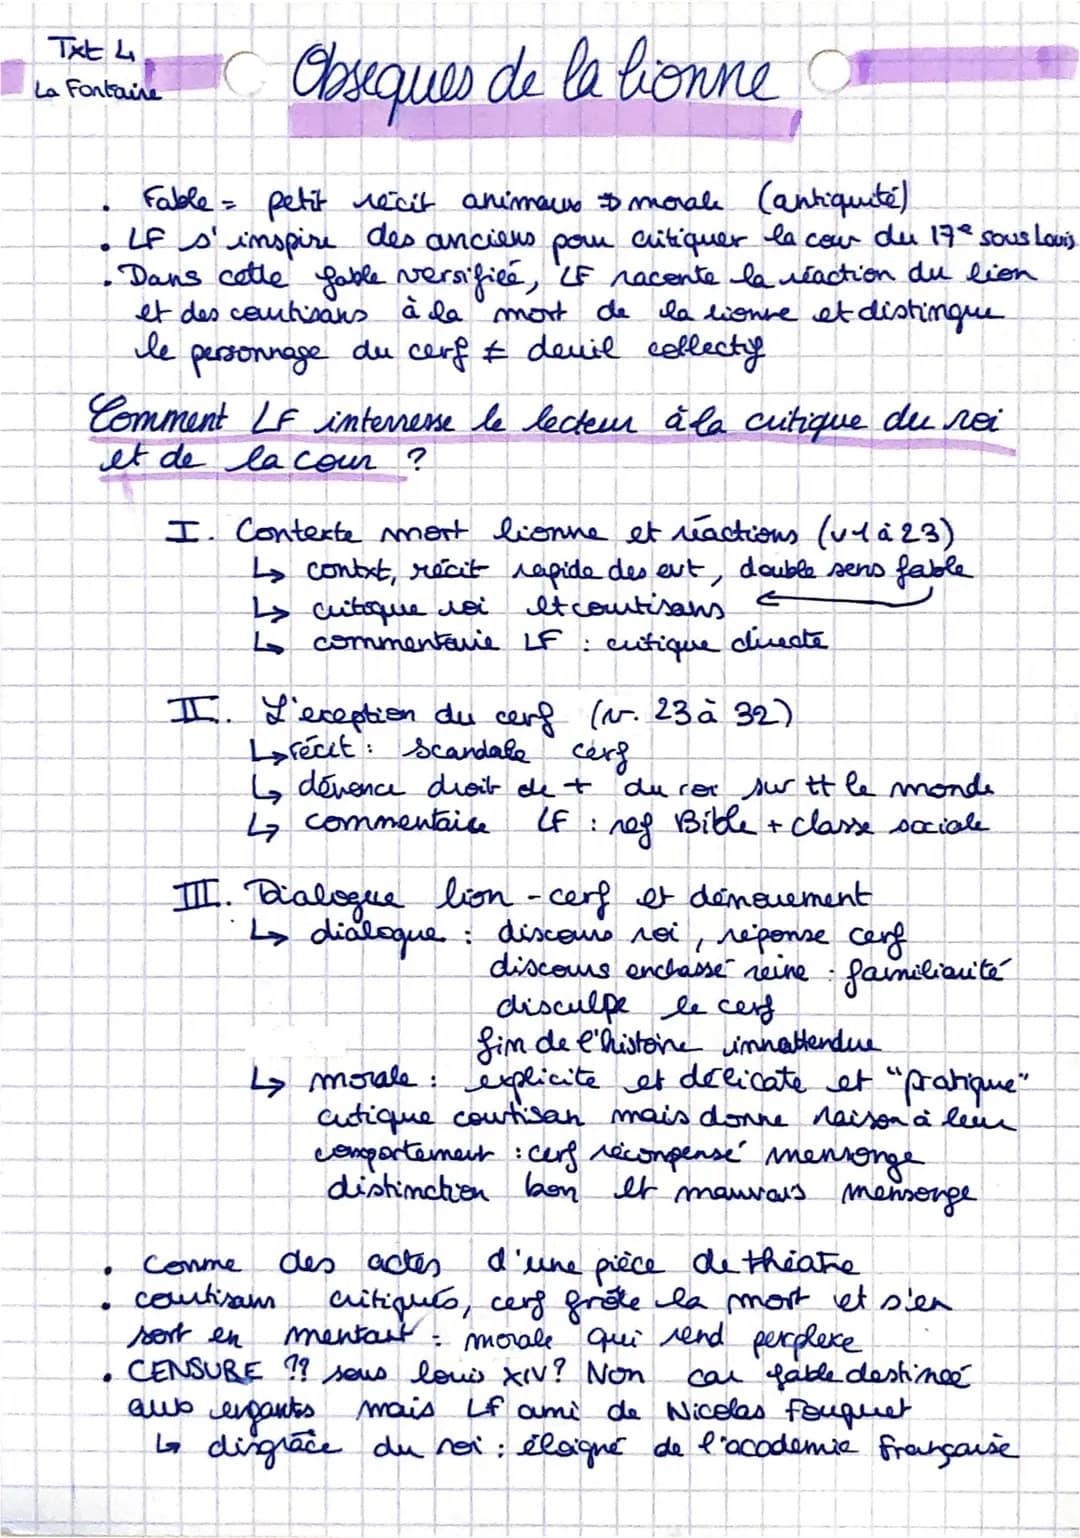 Txt 4
La Fontaine
Obseques de la lionne
. Fable = petit récit animaux => morale (antiquité)
. LF s'inspire des anciens pour critiquer la cour du 17e sous Louis
. Dans cette fable versifiée, LF raconte la réaction du lion
et des courtisans à la mort de la lionne et distingue
le personnage du cerf ≠ deuil collectif
Comment LF interresse le lecteur à la critique du roi
et de la cour ?
I. Contexte mort lionne et réactions (v1 à 23)
↳ contxt, récit rapide des evt, double sens fable
↳ critique roi et courtisans ←
↳ commentaire LF : critique directe
II. L'exeption du cerf (v. 23 à 32)
↳ récit : scandale cerf
↳ dénonce droit de + du roi sur tt le monde
↳ commentaire LF : ref Bible + classe sociale
III. Dialogue lion - cerf et dénouement
↳ dialogue : discours roi, réponse cerf
discours enchassé reine : familiarité
disculpe le cerf
fin de l'histoire innattendue
↳ morale : explicite et délicate et "pratique"
critique courtisan mais donne raison à leur
comportement : cerf récompensé mensonge
distinction bon et mauvais mensonge
. comme des actes d'une pièce de théatre
. courtisans critiqués, cerf frôle la mort et s'en
sort en mentant : morale qui rend perplexe
. CENSURE ?? sous louis XIV ? Non car fable destinée
aux enfants mais LF ami de Nicolas Fouquet
↳ disgrâce du roi : éloigné de l'académie française